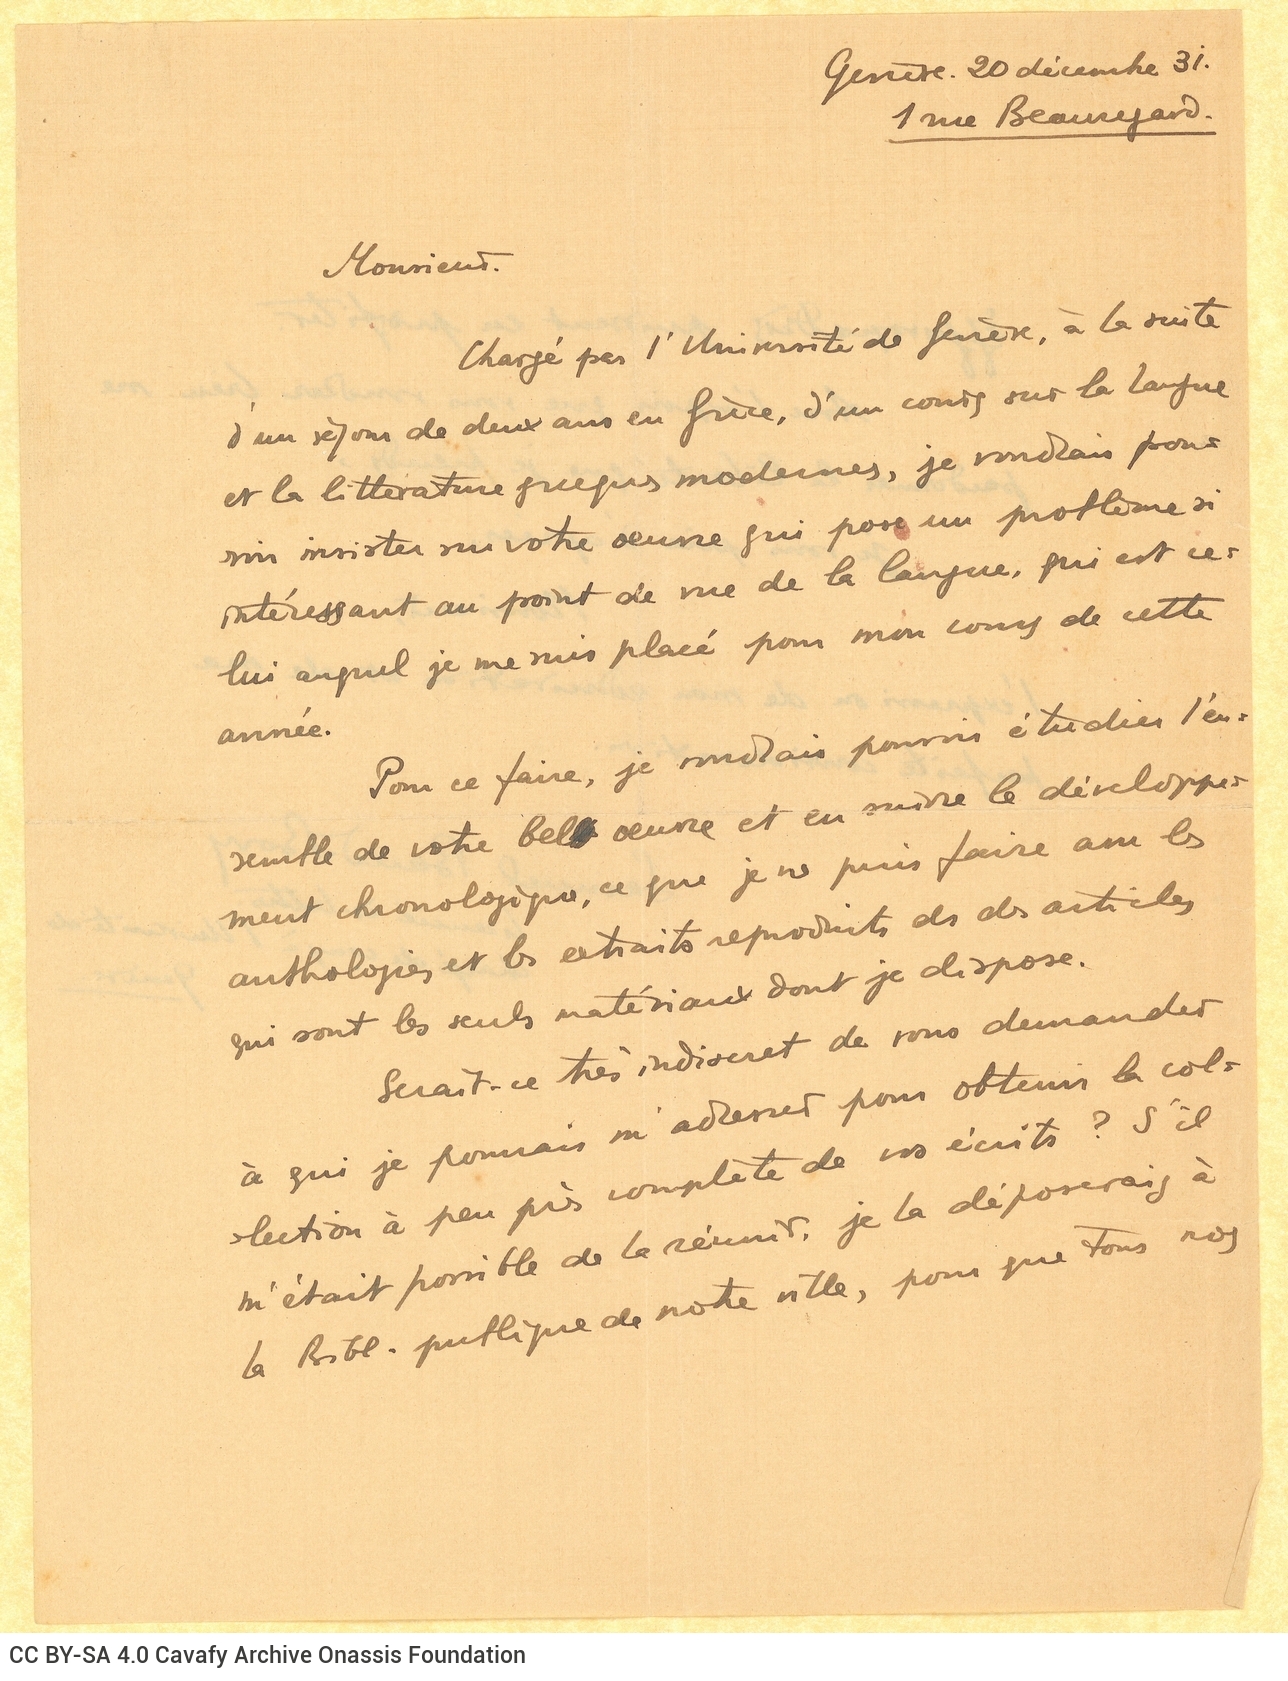 Genève. 20 décembre 31.
1 rue Beauregard.
Monsieur.
Chargé par l'Université de Genève, à la suite
d'un séjour de deux ans en Grèce, d'un cours sur la langue
et la littérature grecques modernes, je voudrais pou=
voir insister sur votre œuvre qui pose un problème si
intéressant au point de vue de la langue, qui est ce=
lui auquel je me suis placé pour mon cours de cette
année.
Pour ce faire, je voudrais pouvoir étudier l'en=
semble de votre belle œuvre et en suivre le développe=
ment chronologique, ce que je ne puis faire avec les
anthologies et les extraits reproduits ds des articles
qui sont les seuls matériaux dont je dispose.
Serait-ce très indiscret de vous demander
à qui je pourrais m'adresser pour obtenir la col=
=lection à peu près complète de vos écrits ? S'il
m'était possible de la réunir, je la déposerais à
la Bibl. publique de notre ville, pour que tous nos
CC BY-SA 4.0 Cavafy Archive Onassis Foundation